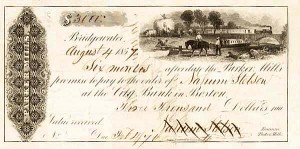 PARKER MILLS
$3000
Bridgewater,
August 4 1857
Six months after date the Parker Mills
promise to pay to the order of Nahum Stetson
at the City Bank in Boston
Three Thousand Dollars
Value received
No
Nahum Stetson
Treasurer
Parker Mills